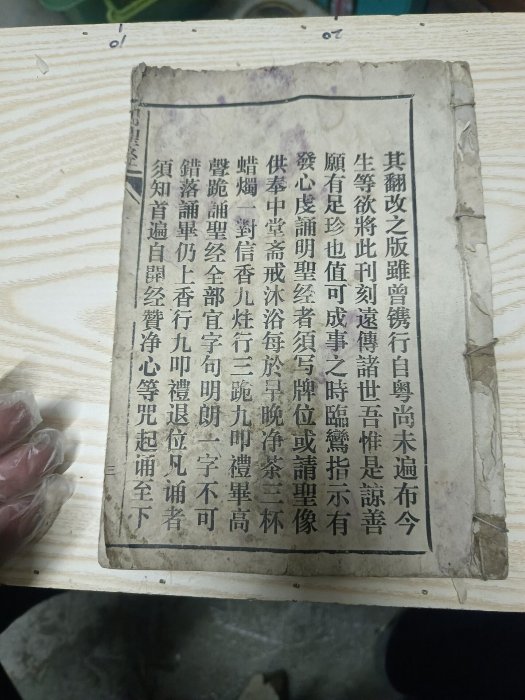 其翻改之版雖曾镌行自粤尚未遍布今
生等欲將此刊刻遠傳諸世吾惟是諒善
願有足珍也值可成事之時臨鸞指示有
發心虔誦明聖经者須写牌位或請聖像
供奉中堂斋戒沐浴每於早晚净茶三杯
蜡燭一對信香九炷行三跪九叩禮畢高
聲跪誦聖经全部宜字句明朗一字不可
錯落誦畢仍上香行九叩禮退位凡誦者
須知首遍自開经贊净心等咒起诵至下
聖经
二
10
20